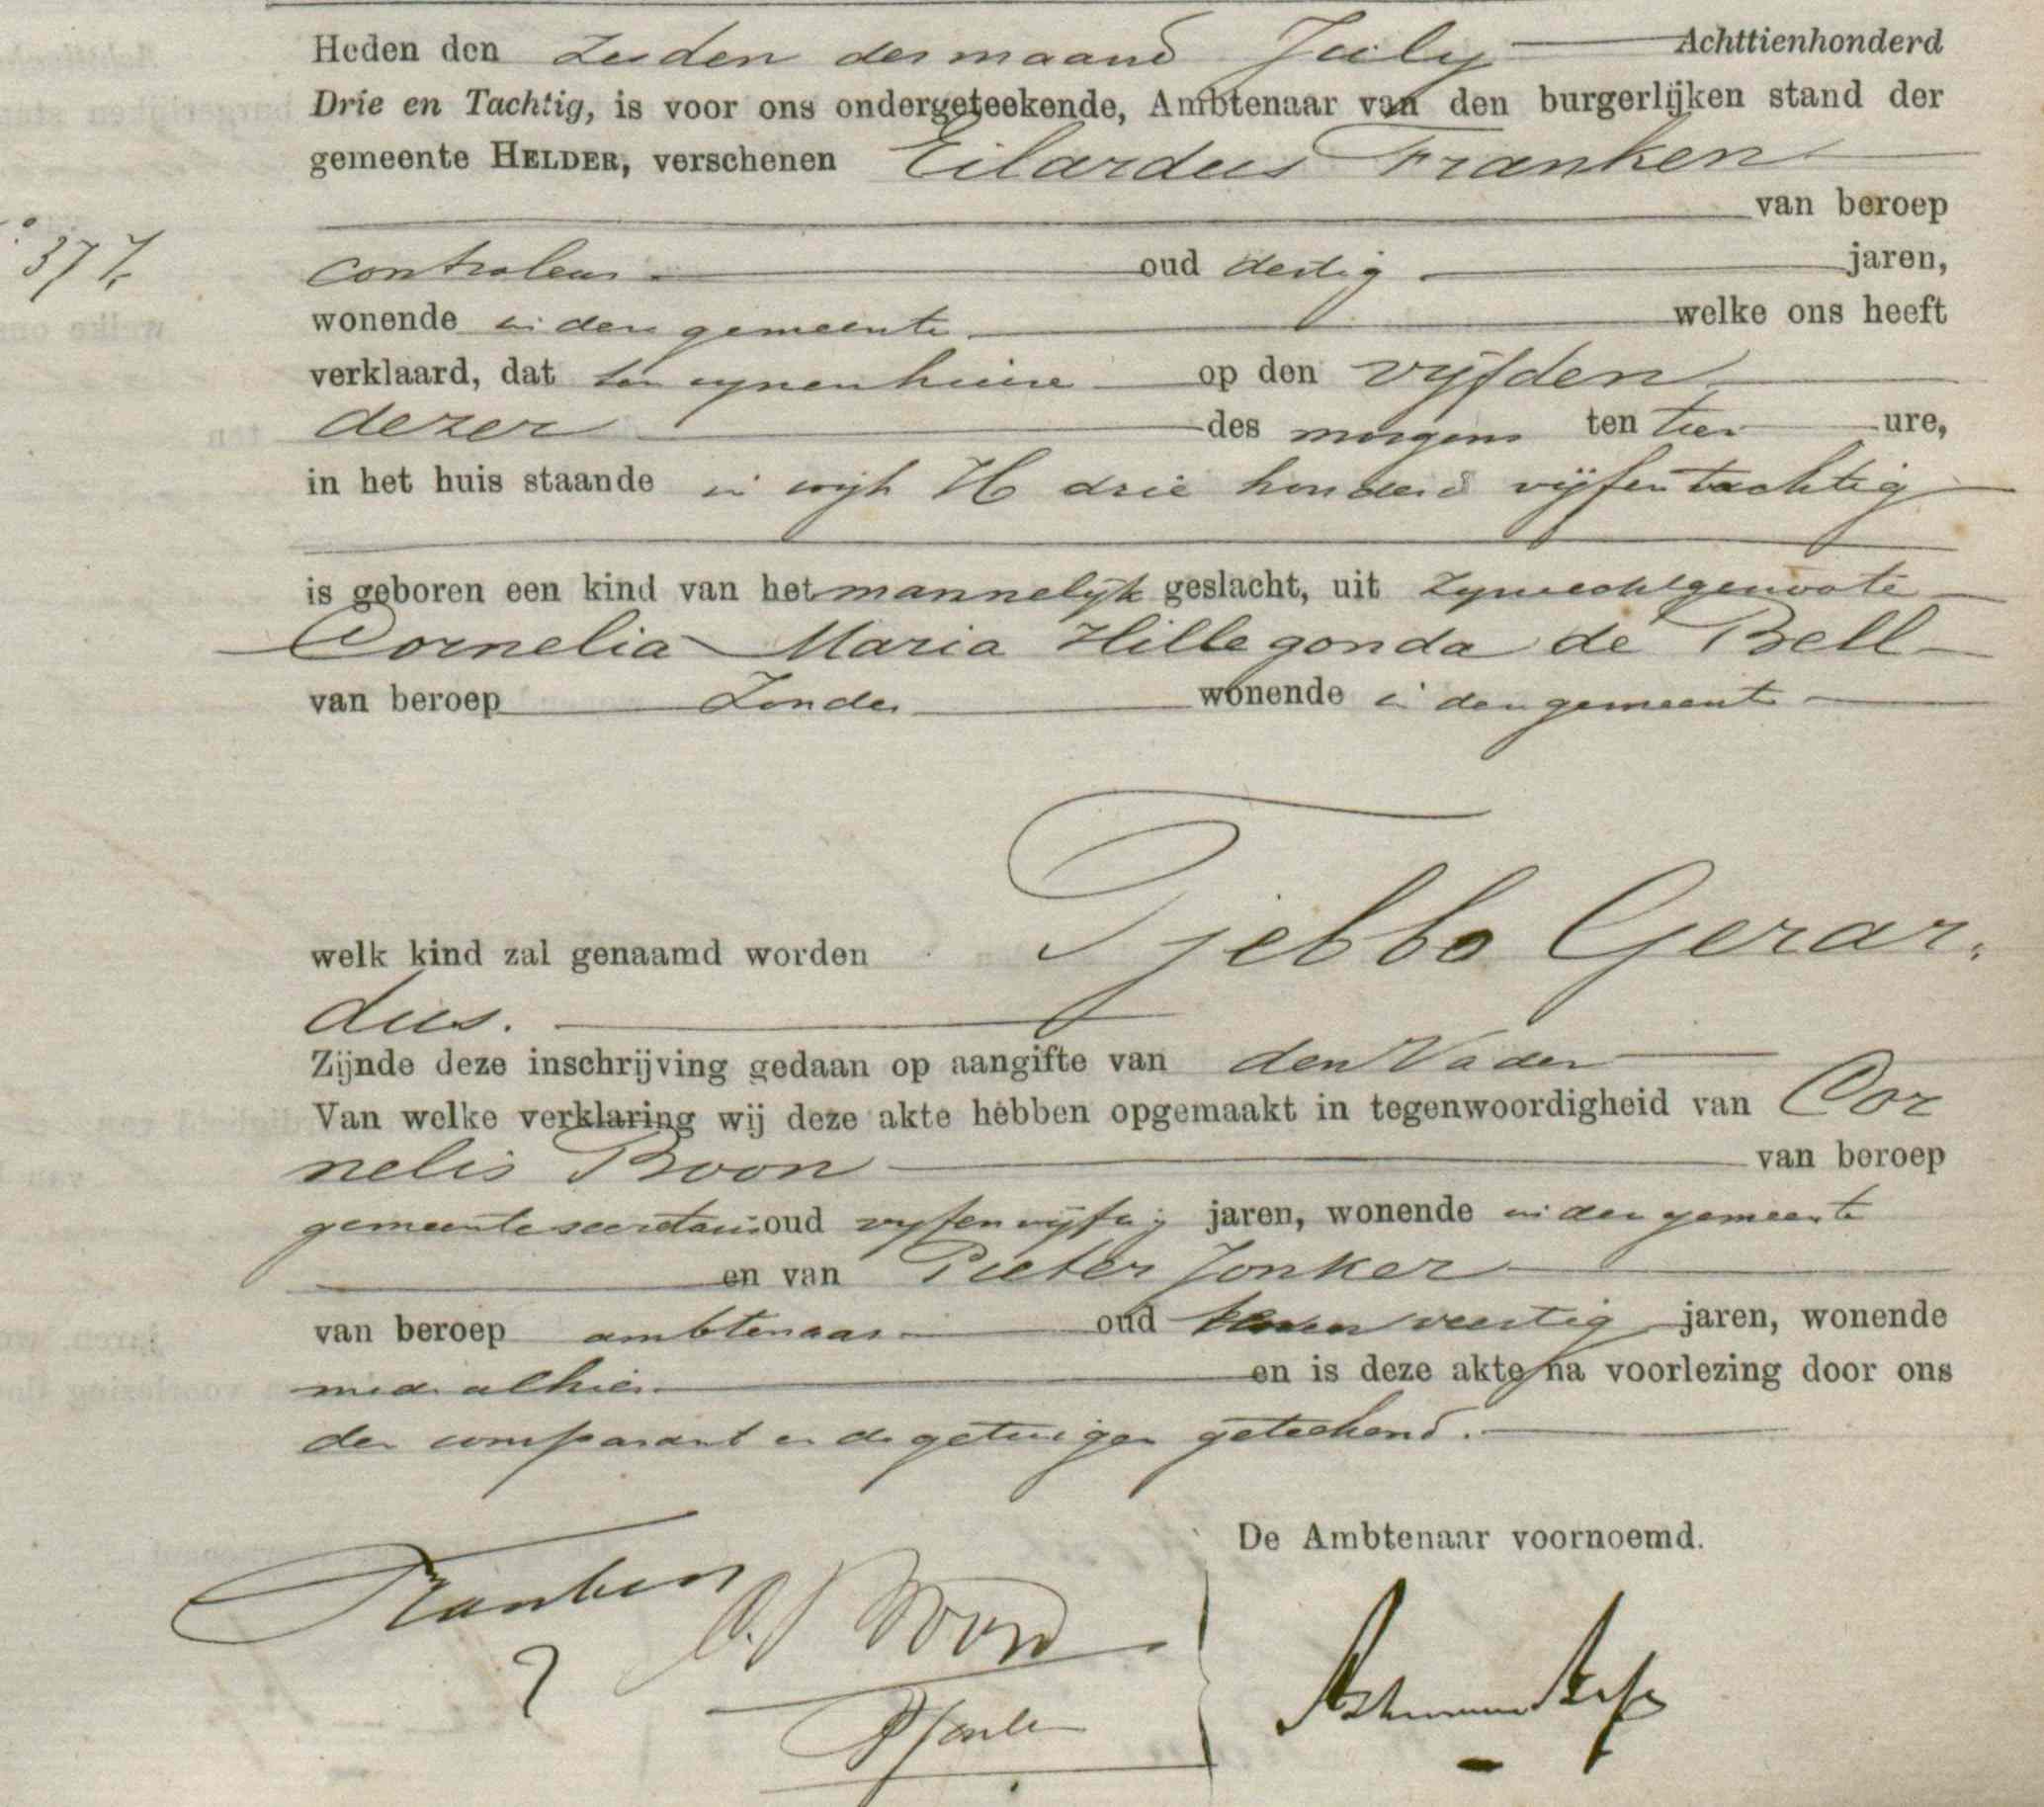 Heden den zesden der maand July Achttienhonderd
Drie en Tachtig, is voor ons ondergeteekende, Ambtenaar van den burgerlijken stand der
gemeente HELDER, verschenen Eilardus Franken
van beroep
377. controleur oud dertig jaren,
wonende in deze gemeente welke ons heeft
verklaard, dat ten zynen huize op den vyfden
dezer des morgens ten tien ure,
in het huis staande in wijk H drie honderd vijfentachtig
is geboren een kind van het mannelyk geslacht, uit zyne echtgenoote
Cornelia Maria Hillegonda de Bell
van beroep Zonder wonende in deze gemeente
welk kind zal genaamd worden Tjebbo Gerar-
dus.
Zijnde deze inschrijving gedaan op aangifte van den Vader
Van welke verklaring wij deze akte hebben opgemaakt in tegenwoordigheid van Cor
nelis Boon van beroep
gemeentesecretaris oud vyfenvyftig jaren, wonende in deze gemeente
en van Pieter Jonker
van beroep ambtenaar oud veertig jaren, wonende
mede alhier en is deze akte na voorlezing door ons
den comparant en de getuigen geteekend.
De Ambtenaar voornoemd.
Franken
C. Boon
P Jonker